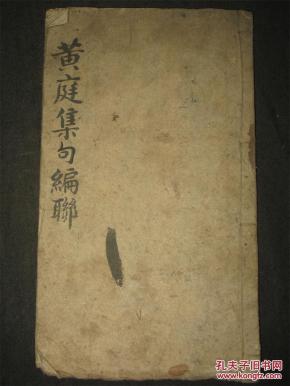 黄庭集句編聯
孔夫子旧书网